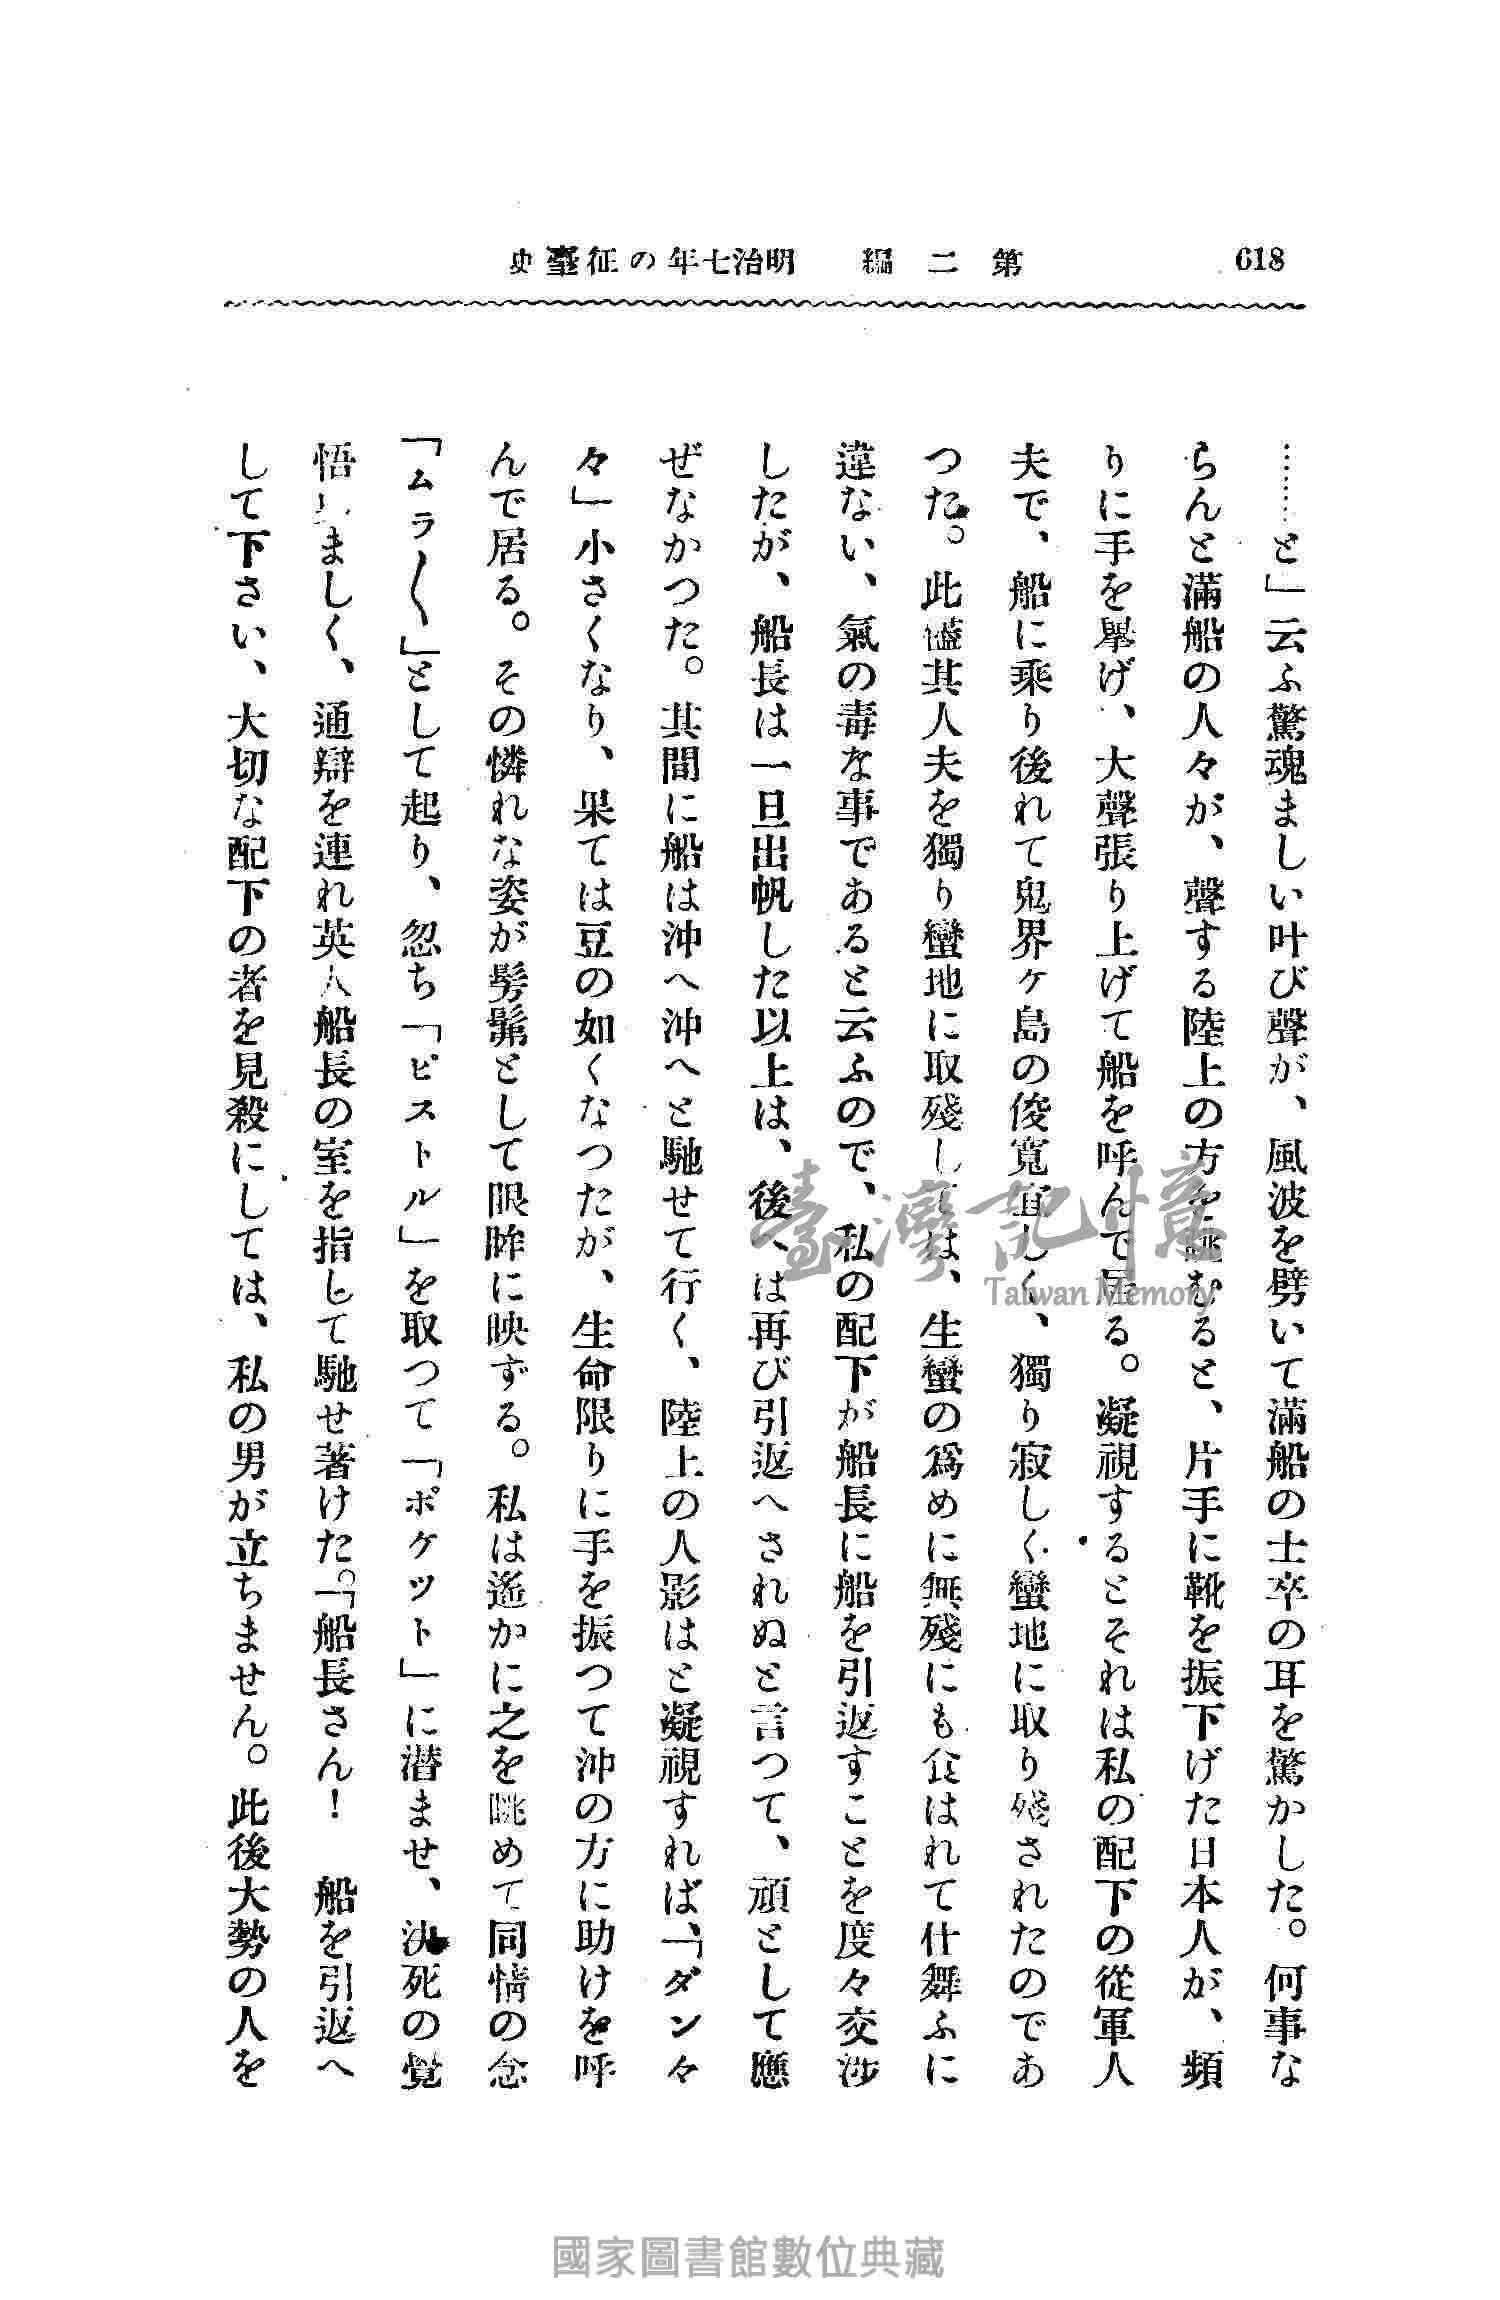 618
第二編　明治七年の征臺史
……と」云ふ驚魂ましい叫び聲が、風波を劈いて滿船の士卒の耳を驚かした。何事な
らんと滿船の人々が、聲する陸上の方を眺むると、片手に靴を振下げた日本人が、頻
りに手を擧げ、大聲張り上げて船を呼んで居る。凝視するとそれは私の配下の從軍人
夫で、船に乘り後れて鬼界ケ島の俊寬宜しく、獨り寂しく蠻地に取り殘されたのであ
つた。此儘其人夫を獨り蠻地に取殘しては、生蠻の爲めに無殘にも食はれて仕舞ふに
違ない、氣の毒な事であると云ふので、私の配下が船長に船を引返すことを度々交渉
したが、船長は一旦出帆した以上は、後へは再び引返へされぬと言つて、頑として應
ぜなかつた。其間に船は沖へ沖へと馳せて行く、陸上の人影はと凝視すれば、「ダン々
々」小さくなり、果ては豆の如くなつたが、生命限りに手を振つて沖の方に助けを呼
んで居る。その憐れな姿が髣髴として眼眸に映ずる。私は遙かに之を眺めて同情の念
「ムラ〱」として起り、忽ち「ピストル」を取つて「ポケツト」に潜ませ、決死の覺
悟しましく、通辯を連れ英人船長の室を指して馳せ著けた。「船長さん！　船を引返へ
して下さい、大切な配下の者を見殺にしては、私の男が立ちません。此後大勢の人を
臺灣記憶
Taiwan Memory
國家圖書館數位典藏